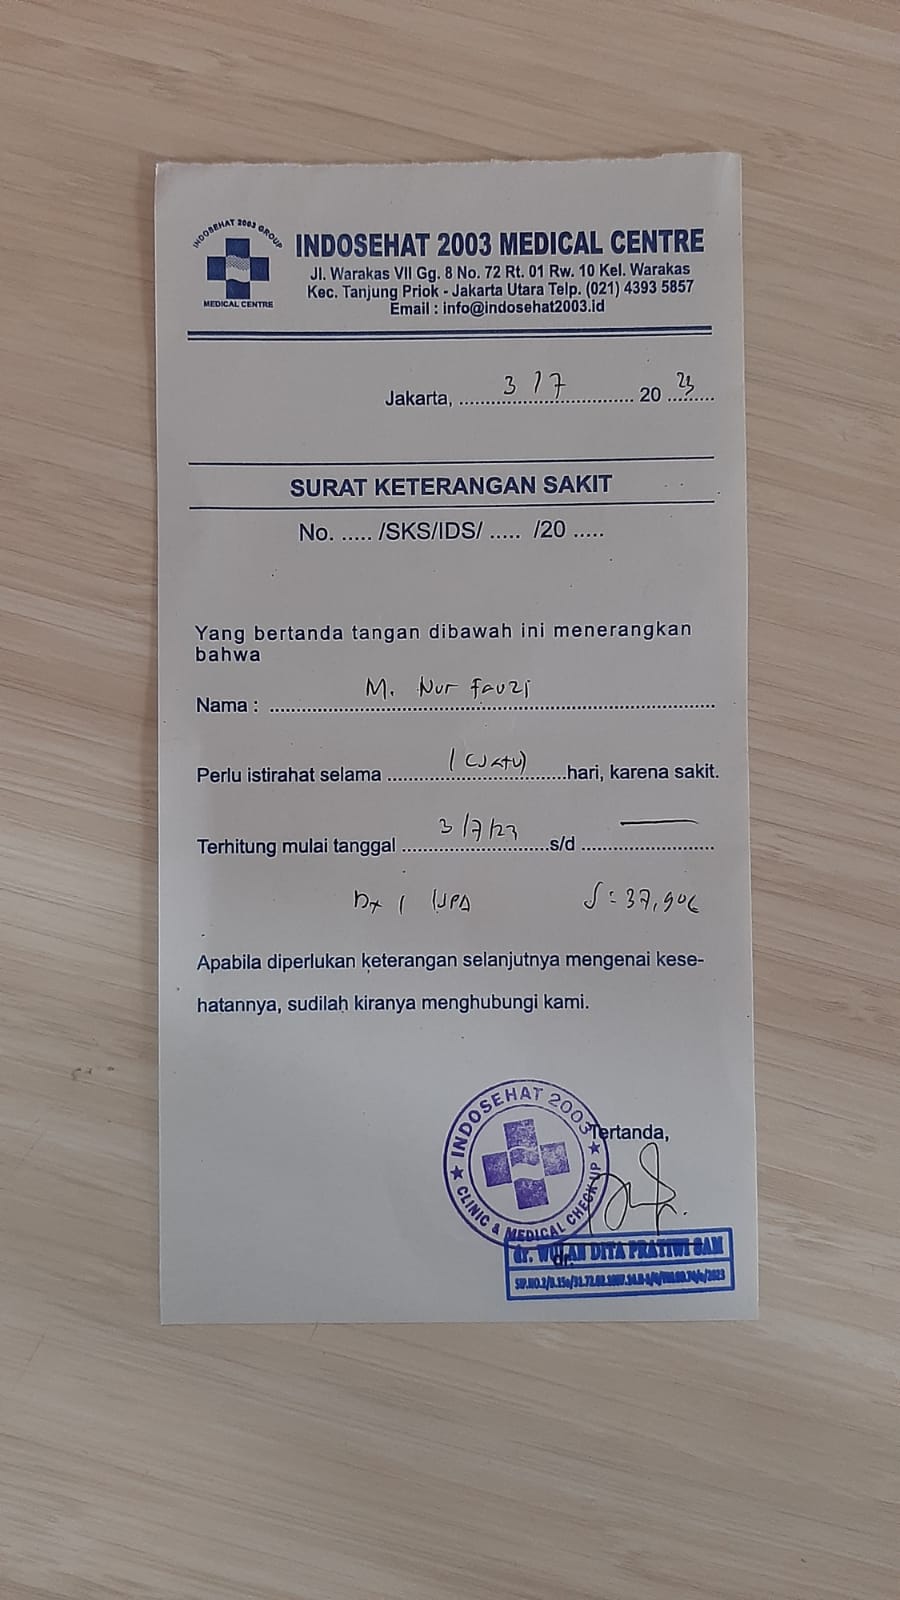 INDOSEHAT 2003 GROUP
MEDICAL CENTRE
INDOSEHAT 2003 MEDICAL CENTRE
Jl. Warakas VII Gg. 8 No. 72 Rt. 01 Rw. 10 Kel. Warakas
Kec. Tanjung Priok - Jakarta Utara Telp. (021) 4393 5857
Email : info@indosehat2003.id
Jakarta, .......... 3 / 7 .......... 20 23
SURAT KETERANGAN SAKIT
No. ..... /SKS/IDS/ ..... /20 .....
Yang bertanda tangan dibawah ini menerangkan
bahwa
Nama : M. Nur Fauzi
Perlu istirahat selama 1 (satu) hari, karena sakit.
Terhitung mulai tanggal 3/7/23 s/d —
Dx S: 37,90c
Apabila diperlukan keterangan selanjutnya mengenai kese-
hatannya, sudilah kiranya menghubungi kami.
INDOSEHAT 2003
CLINIC & MEDICAL CHECK UP
Tertanda,
dr. WULAN DITA PRATIWI SAM
dr.